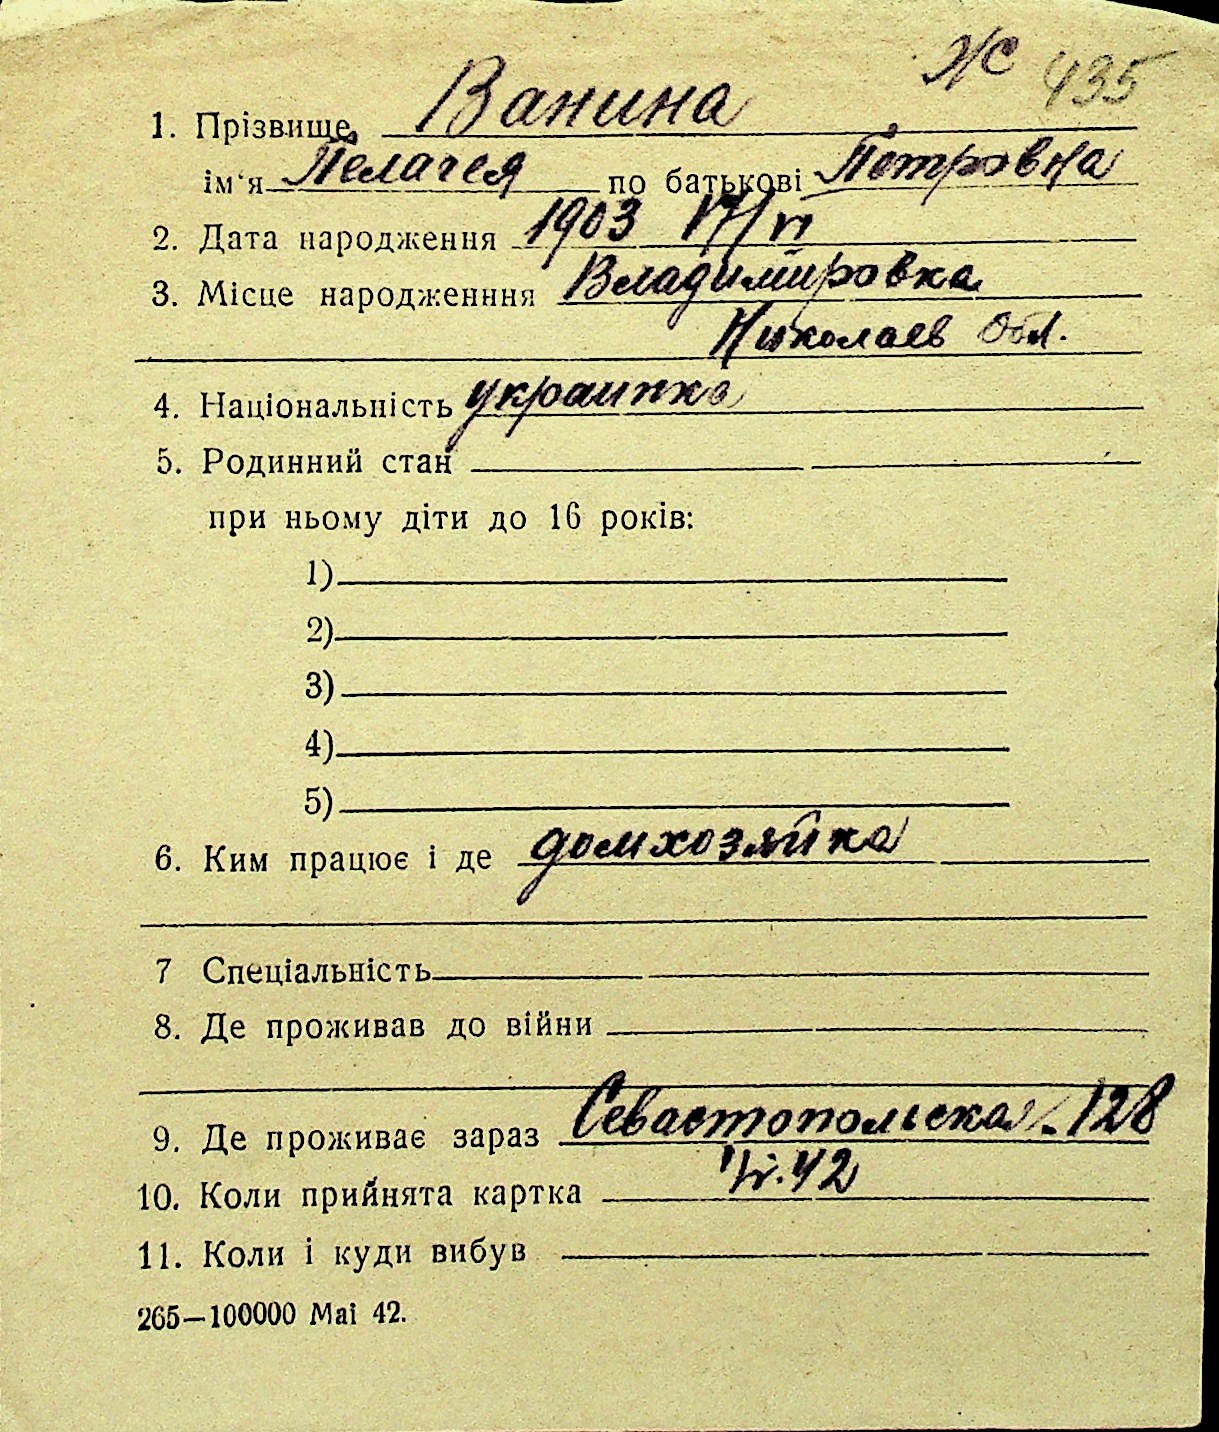 Ж 435
1. Прізвище Ванина
ім'я Пелагея по батькові Петровна
2. Дата народження 1903 17/VI
3. Місце народженння Владимировка
Николаев Обл.
4. Національність украинка
5. Родинний стан
при ньому діти до 16 років:
1)
2)
3)
4)
5)
6. Ким працює і де домхозяйка
7 Спеціальність
8. Де проживав до війни
9. Де проживає зараз Севастопольская 128
10. Коли прийнята картка 42
11. Коли і куди вибув
265—100000 Mai 42.